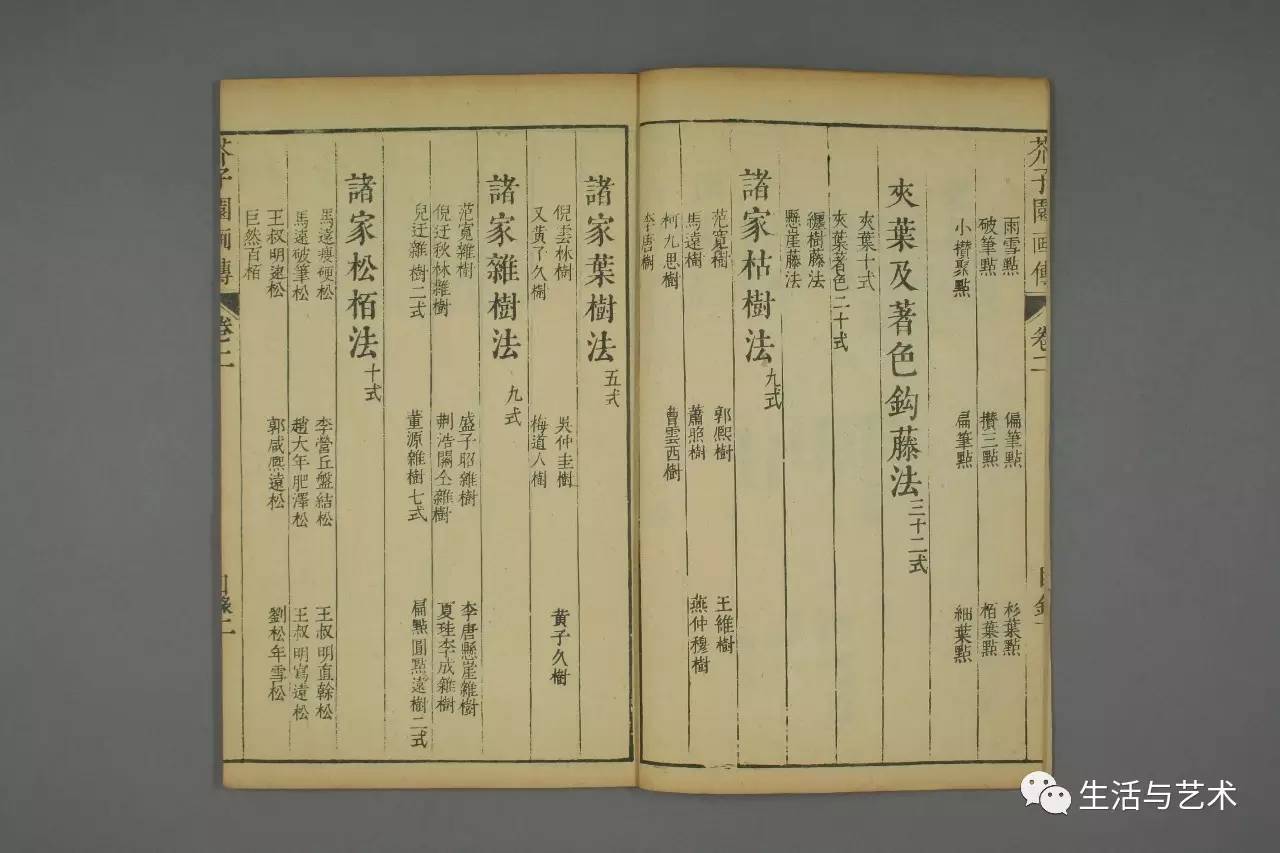 芥子園画傳 卷二 目錄
雨雪點 偏筆點 杉葉點
破筆點 攢三點 栢葉點
小攢聚點 扁筆點 細葉點
夾葉及著色鈎藤法 三十二式
夾葉十式
夾葉著色二十式
纒樹藤法
懸崖藤法
諸家枯樹法 九式
范寬樹 郭熙樹 王維樹
馬遠樹 蕭照樹 燕仲穆樹
柯九思樹 曹雲西樹
李唐樹
諸家葉樹法 五式
倪雲林樹 吳仲圭樹 黃子久樹
又黃子久樹 梅道人樹
諸家雜樹法 九式
范寬雜樹 盛子昭雜樹 李唐懸崖雜樹
倪迂秋林雜樹 荆浩關仝雜樹 夏珪李成雜樹
兒迂雜樹二式 董源雜樹七式 扁點圓點遠樹二式
諸家松栢法 十式
馬遠瘦硬松 李營丘盤結松 王叔明直榦松
馬遠破筆松 趙大年肥澤松 王叔明寫遠松
王叔明 松 郭咸熙遠松 劉松年雪松
巨然百栢
芥子園画傳 卷二 目錄二
生活与艺术